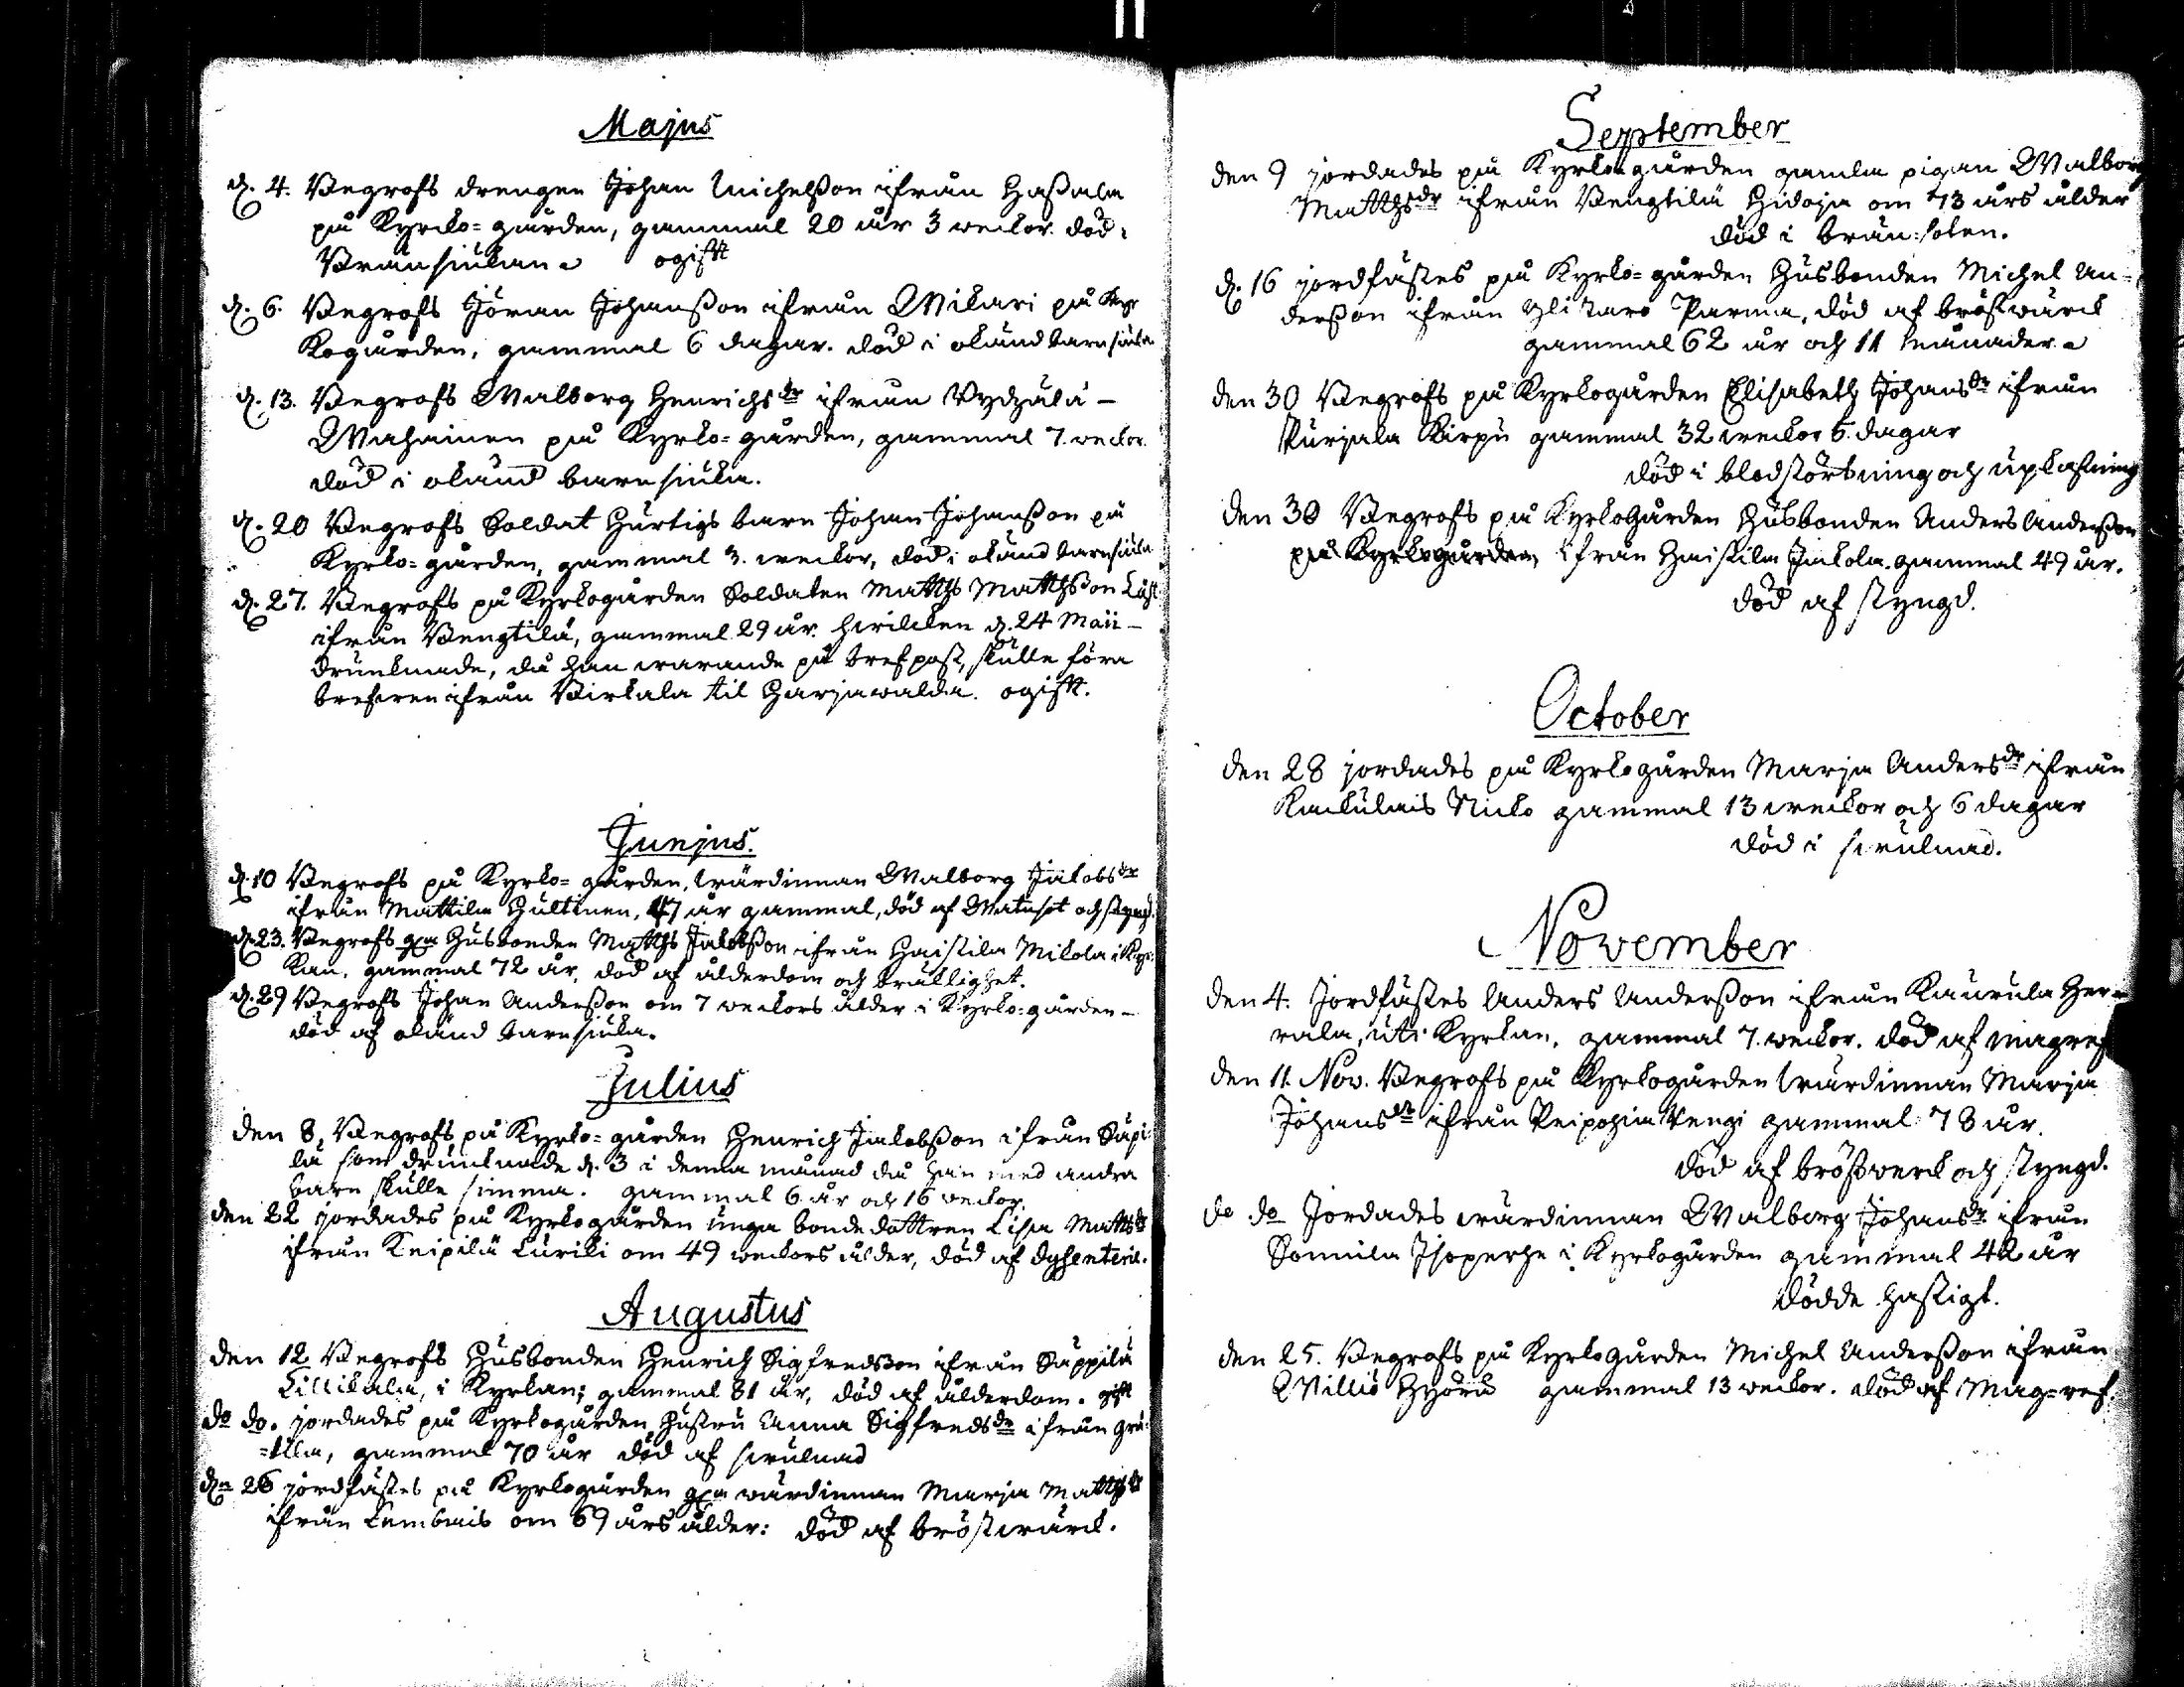 Majus
d. 4. Begrofs drengen Johan Michelsson ifrån Hassala
på Kyrcko=gården, gammal 20 år 3 weckor. död i
Brånsiukan. ogift
d. 6. Begrofs Jöran Johansson ifrån Wikari på Kyr
kogården, gammal 6 dagar. död i okänd barnsiuka
d. 13. Begrofs Walborg Henrichsdr ifrån
Wahainen på Kyrko=gården, gammal 7. weckor.
död i okänd barnsiuka.
d. 20 Begrofs Soldat Hurtigs barn Johan Johansson på
Kyrko=gården, gammal 3. weckor, död i okänd barnsiuka
d. 27. Begrofs på Kyrkogården Soldaten Matths Matthsson
ifrån Bengtilä, gammal 29 år. hwilcken d. 24 Maii -
drunknade, då han warande på brefpost, skulle föra
brefwen ifrån Birkala til Harjawalda. ogift.
Junjus.
d. 10 Begrofs på Kyrko=gården, wärdinnan Walborg Jakobsdr
ifrån Mattila Hultinen, 47 år gammal, död af Watusot och styngd.
d. 23. Begrofs gla Husbonden Matths Jakobsson ifrån Haistila Mikola i Kyr=
kan, gammal 72 år, död af ålderdom och bråcklighet.
d. 29 Begrofs Johan Andersson om 7 weckors ålder i Kyrko=gården -
död af okänd barnsiuka.
Julius
den 8, Begrofs på Kyrko=gården Henrich Jakobsson ifrån Säpi=
lä som drunknade d. 3 i denna månad då han med andra
barn skulle simma. gammal 6 år och 16 weckor.
den 22 jordades på Kyrkogården unga bonde dottren Lisa Mattsdr
ifrån Knipilä Luriki om 49 weckors ålder, död af dysenterie.
Augustus
den 12 Begrofs Husbonden Henrich Sigfredsson ifrån Säppilä
Lillikala, i Kyrkan; gammal 81 år, död af ålderdom. gift
do do. jordades på Kyrkogården hustru Anna Sigfredsdr ifrån
gammal 70 år död af swulnad
dn 26 jordfästes på Kyrkogården gla wärdinnan Marja Matthsdr
ifrån Lembois om 69 års ålder: död af bröstwärck.
September
den 9 jordades på Kyrkogården gamla pigan Walborg
Matthsdr ifrån Bengtilä Hidoja om 73 års ålder
död i brån=soten.
d. 16 jordfästes på Kyrko=gården Husbonden Michel An=
dersson ifrån Ylistaro Parma, död af bröstwärck
gammal 62 år och 11 månader
den 30 Begrofs på Kyrkogården Elisabeth Johansdr ifrån
Purjala Kirpu gammal 32 weckor 5. dagar
död i blodstörtning och upkastning
den 30 Begrofs på Kyrkogården Husbonden Anders Andersson
på Kyrkogården, ifrån Haistila Jakola gammal 49 år.
död af styngd.
October
den 28 jordades på Kyrkogården Marja Andersdr ifrån
Kackulais Nicko gammal 13 weckor och 6 dagar
död i swulnad.
November
den 4. Jordfästes Anders Andersson ifrån Kaurula Her=
rala, uti Kyrkan, gammal 7. weckor. död af magref
den 11. Nov. Begrofs på Kyrkogården wärdinnan Marja
Johansdr ifrån Peipohja Bengi gammal 78 år.
död af bröstwerck och styngd.
do do Jordades wärdinnan Walborg Johansdr ifrån
Sonnila Isoperhe i Kyrkogården gammal 42 år
dödde hastigt.
den 25. Begrofs på Kyrkogården Michel Andersson ifrån
Williö Hyörd gammal 13 weckor. död af Mag=ref.